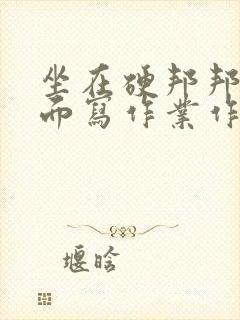 坐在硬邦邦
而寫作業作
堰晗